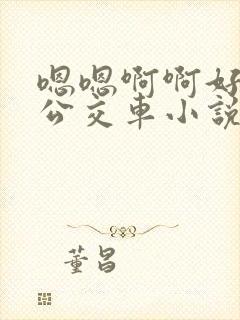 嗯嗯啊啊好
公交车小説
董昌